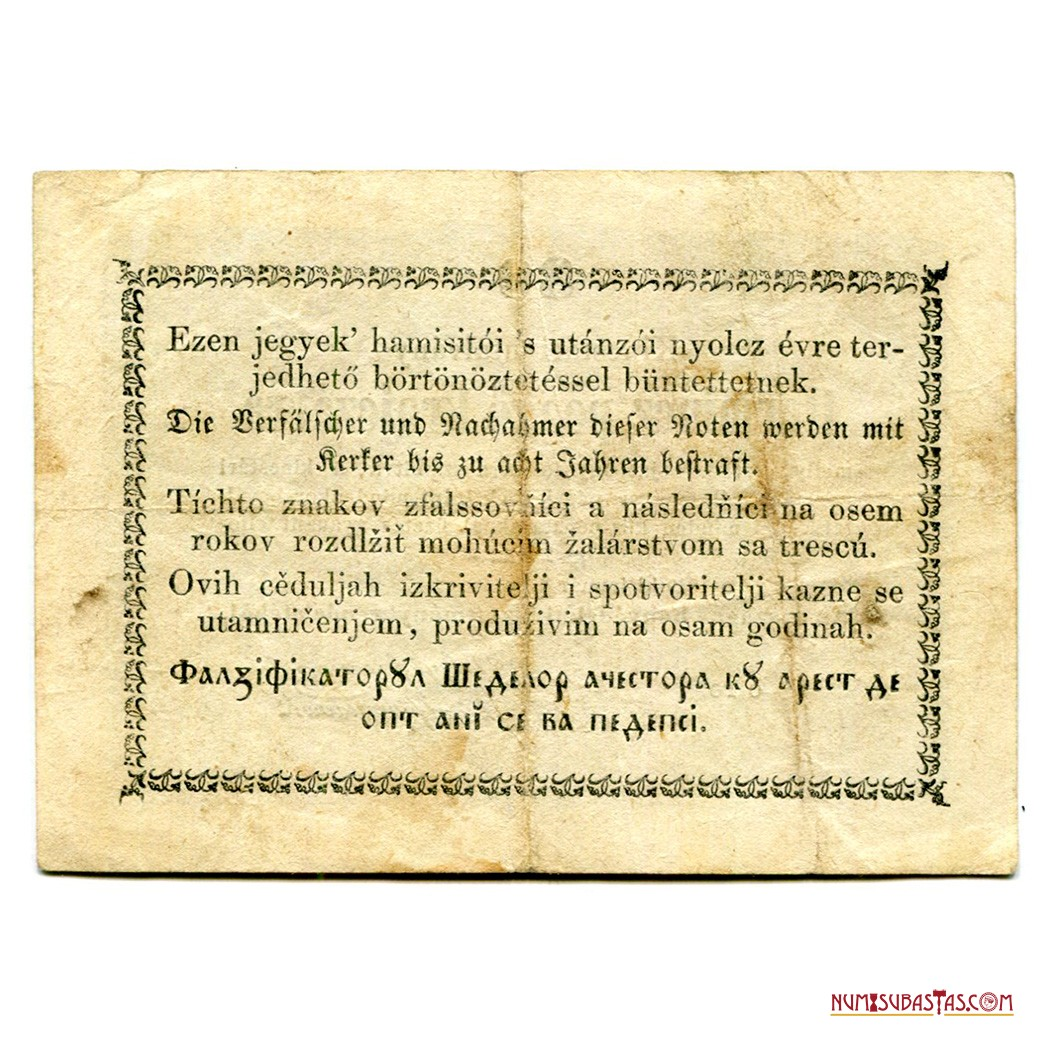 Ezen jegyek’ hamisitói ’s utánzói nyolcz évre ter-
jedhető börtönöztetéssel büntettetnek.
Die Verfälscher und Nachahmer dieser Noten werden mit
Kerker bis zu acht Jahren bestraft.
Tíchto znakov zfalssovňíci a následňíci na osem
rokov rozdlžiť mohúcím žalárstvom sa trescú.
Ovih cěduljah izkrivitelji i spotvoritelji kazne se
utamničenjem, produživim na osam godinah.
Фалꙁіфікаторꙋл Шеделор ачестора кꙋ арест де
опт анĭ се ва педепсі.
NUMISUBASTAS.COM